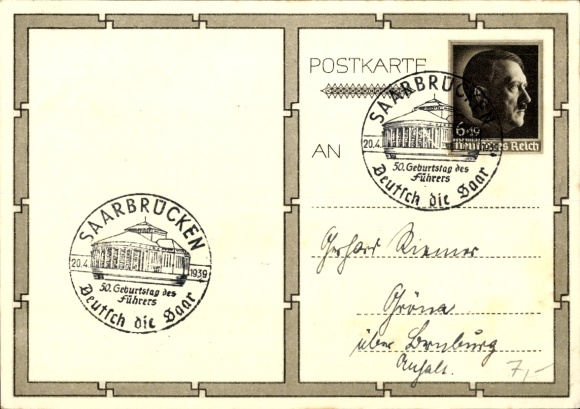 POSTKARTE
SAARBRÜCKEN
20.4.
50. Geburtstag des
Führers
Deutsch die Saar
6+19
Deutsches Reich
AN
SAARBRÜCKEN
20.4. 1939
50. Geburtstag des
Führers
Deutsch die Saar
Gerhard Riemer
Gröna
über Bernburg
Anhalt.
7,-